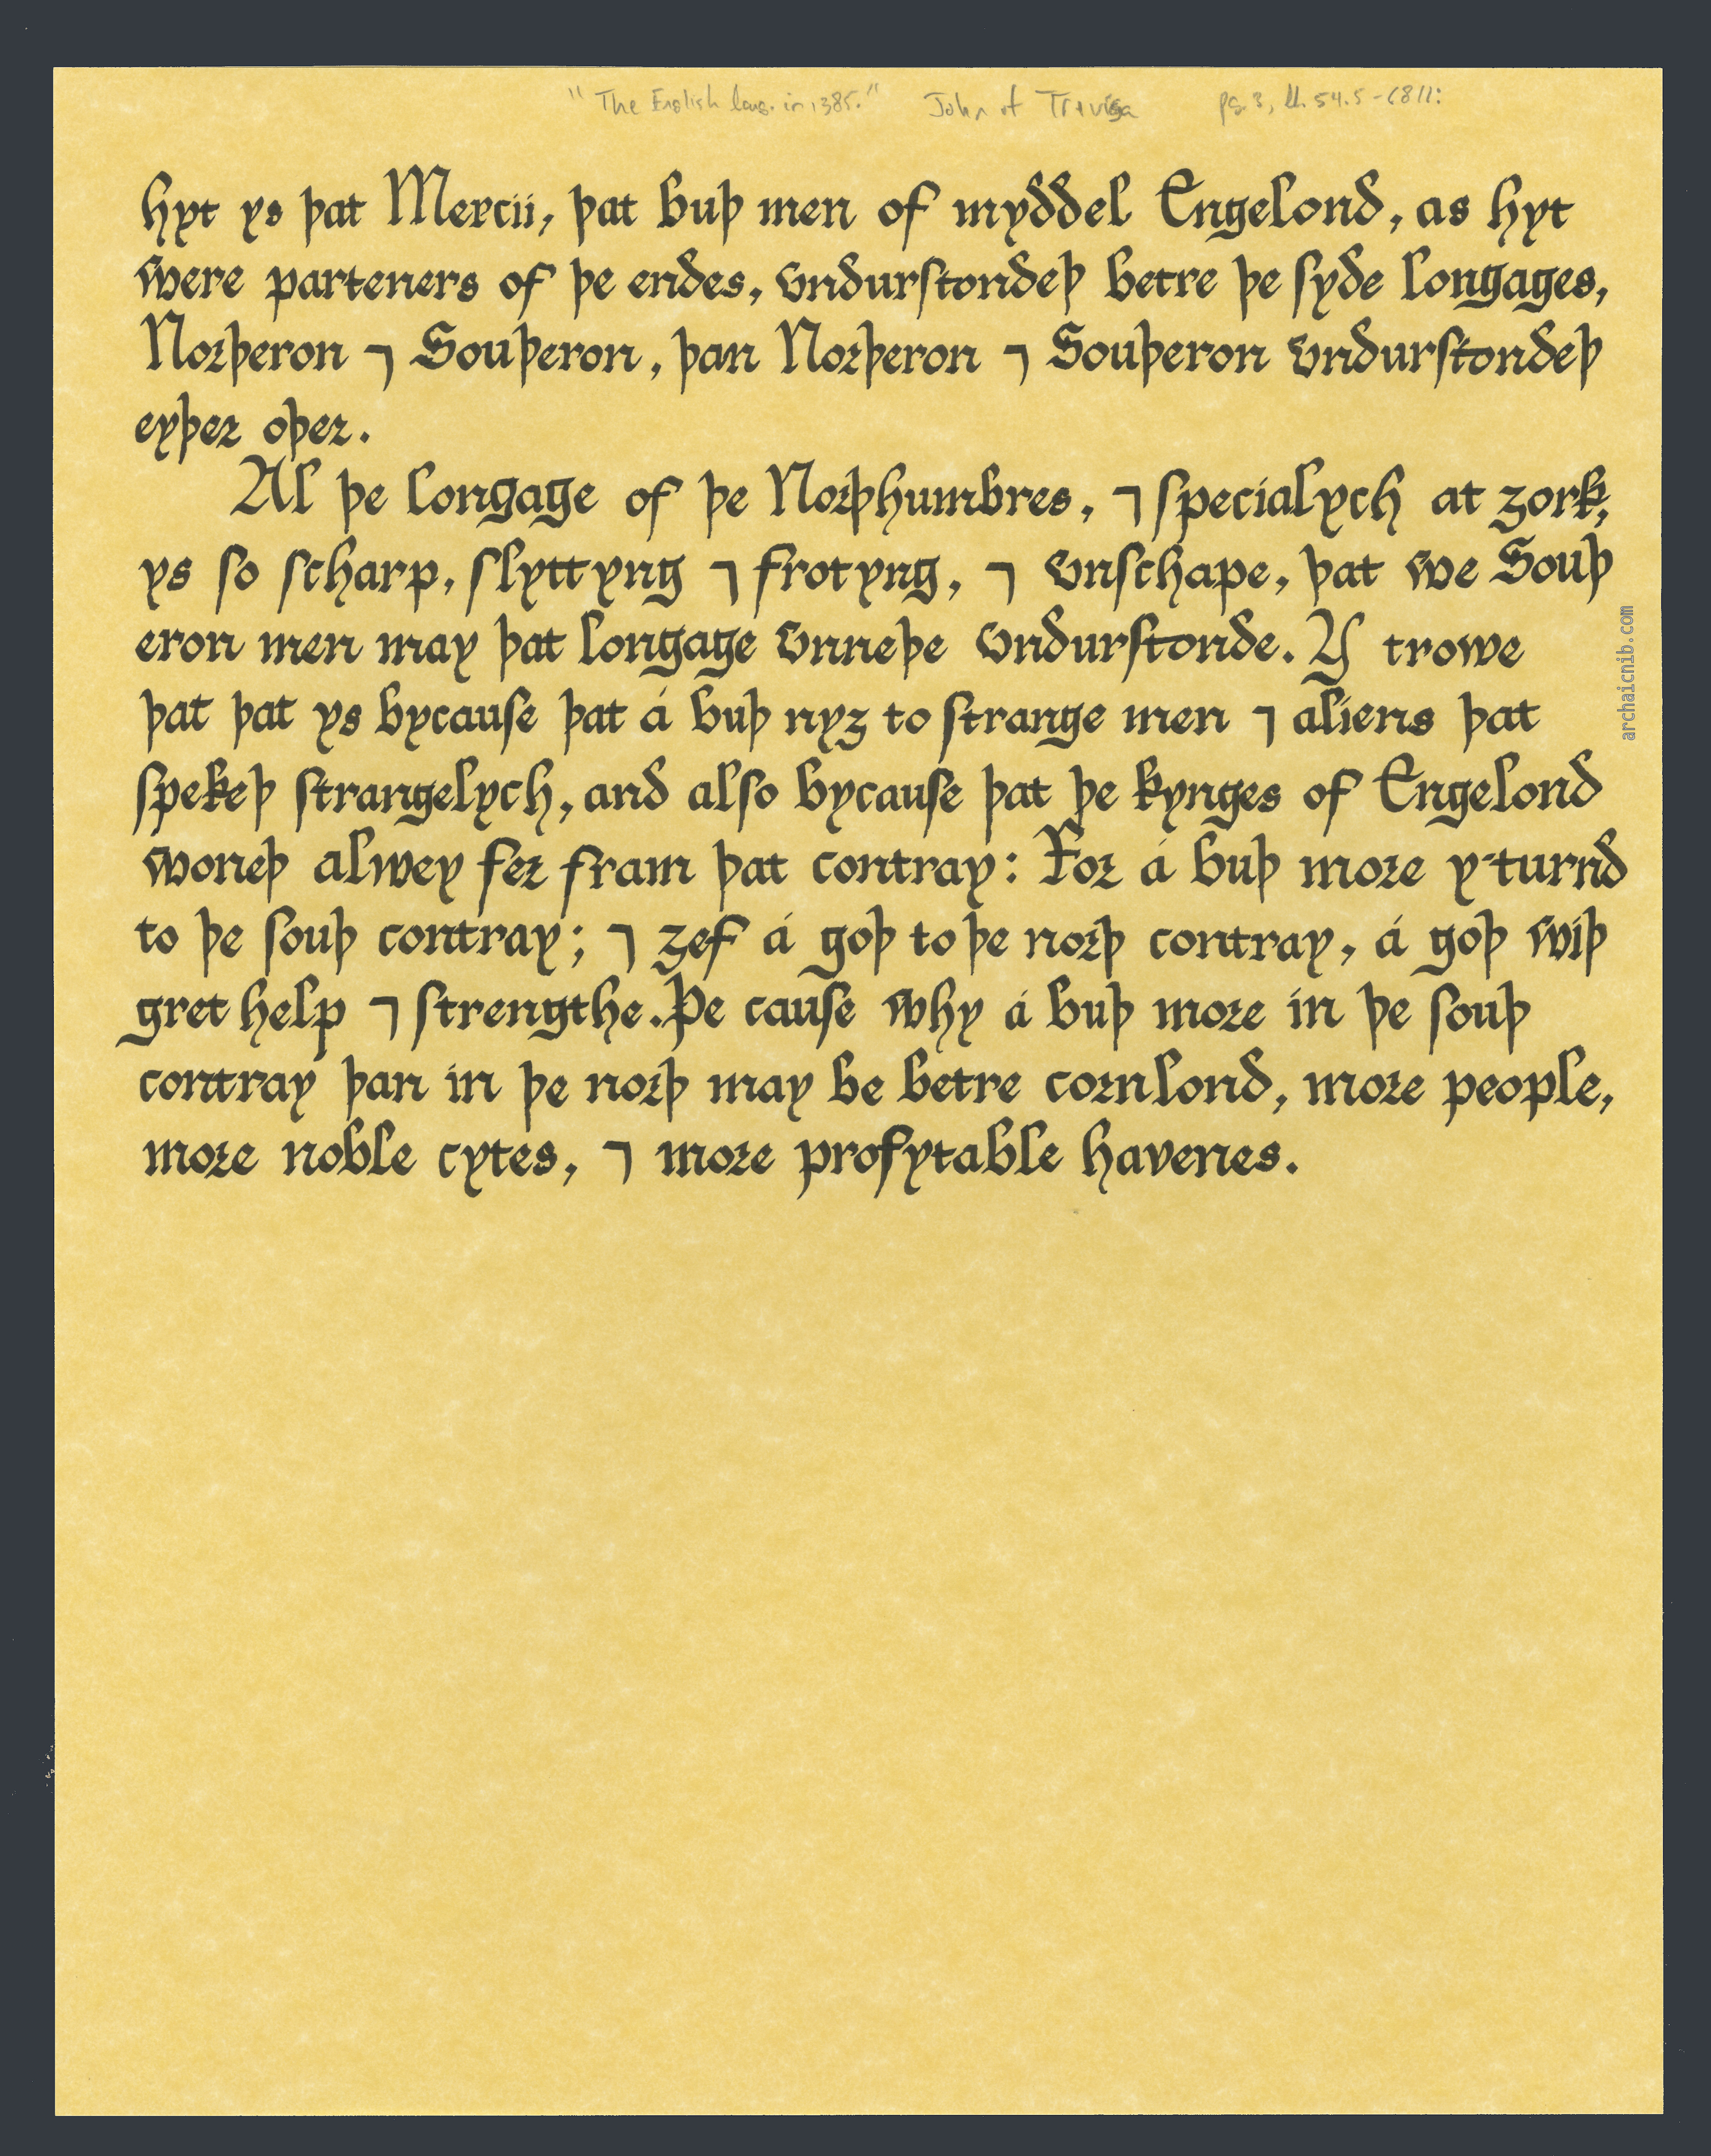 "The English lang. in 1385." John of Trevisa pg. 3, ll. 54.5-68 ||:
hyt ys þat Mercii, þat buþ men of myddel Engelond, as hyt
were parteners of þe endes, vndurſtondeþ betre þe ſyde longages,
Norþeron ⁊ Souþeron, þan Norþeron ⁊ Souþeron vndurſtondeþ
eyþer oþer.
Al þe longage of þe Norþhumbres, ⁊ specialych at ȝork,
ys so scharp, slyttyng ⁊ frotyng, ⁊ vnschape, þat we Souþ
eron men may þat longage vnneþe vndurſtonde. Y trowe
þat þat ys bycauſe þat á buþ nyȝ to strange men ⁊ aliens þat
spekeþ strangelych, and also bycauſe þat þe kynges of Engelond
woneþ alwey fer fram þat contray: For á buþ more y-turnd
to þe souþ contray; ⁊ ȝef á goþ to þe norþ contray, á goþ wiþ
gret help ⁊ strengthe. Þe cauſe why á buþ more in þe souþ
contray þan in þe norþ may be betre cornlond, more people,
more noble cytes, ⁊ more profytable havenes.
archaicnib.com